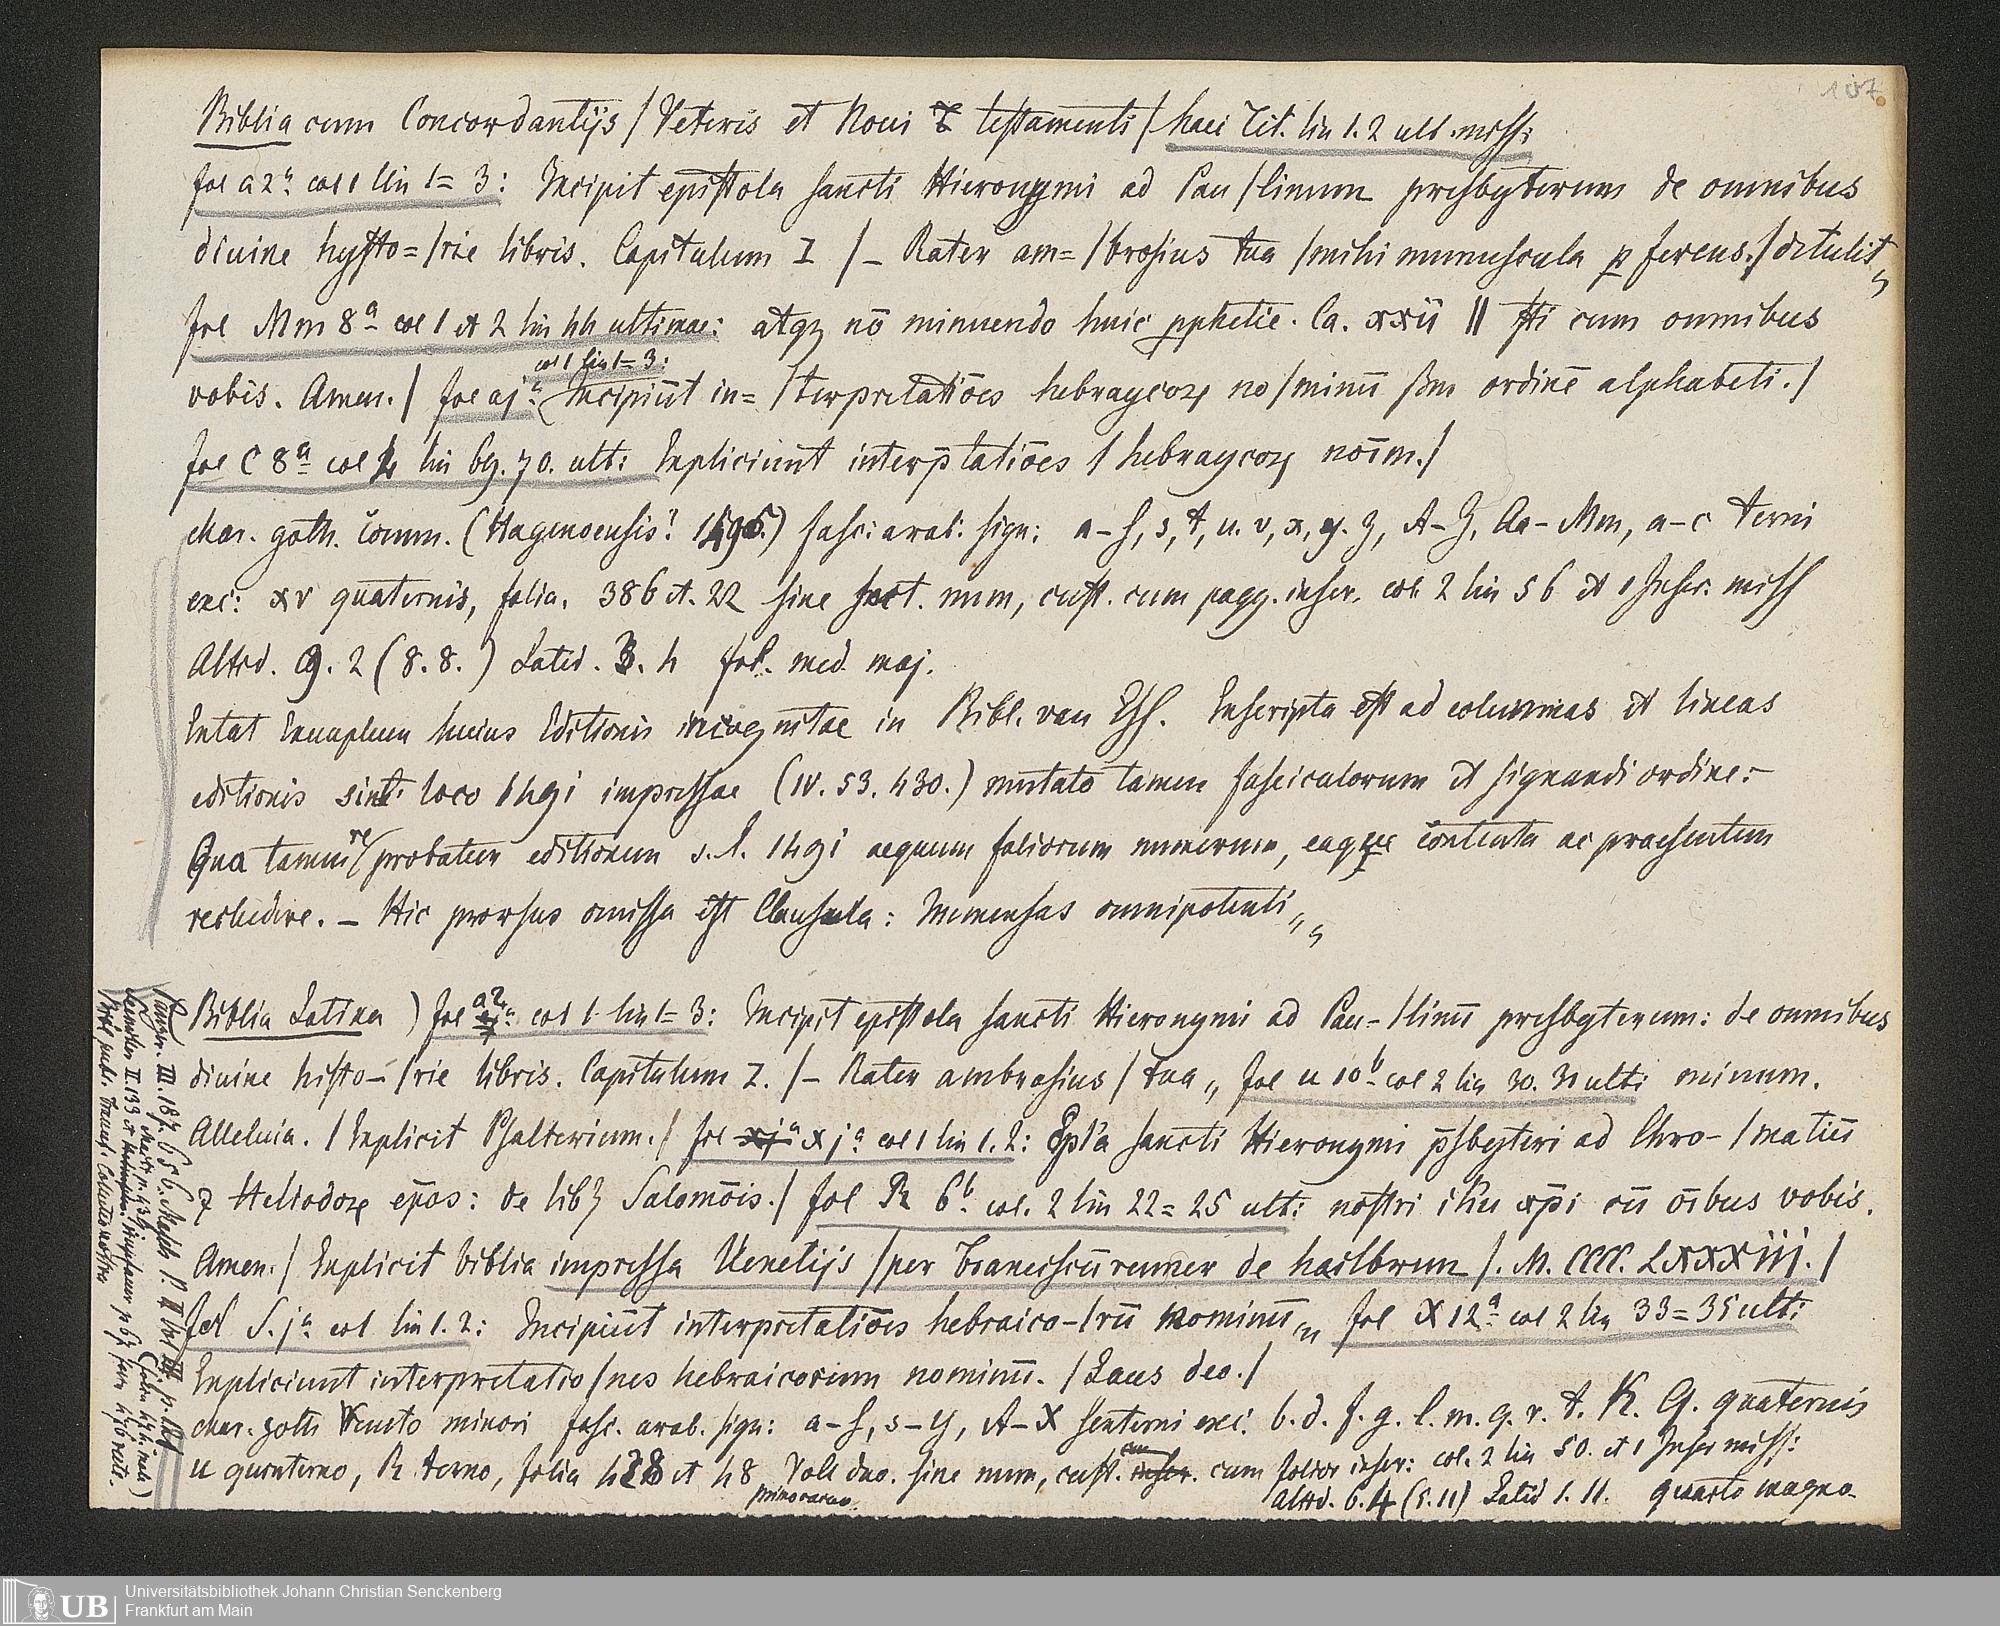 107.
Biblia cum Concordantijs / Veteris et Noui testamenti / haec Tit. lin 1. 2 ult. miss:
fol a 2ª col 1 lin 1=3: Incipit epistola sancti Hieronymi ad Pau / linum presbyterum de omnibus
diuine hysto=/rie libris. Capitulum I / – Rater am=/brosius tua / mihi munuscula p ferens. / detulit „
fol Mm 8ª col 1 et 2 lin 44 ultimae: atqz nō minuendo huic pphetie. Ca. xxii || sti cum omnibus
vobis. Amen. / fol aj ª col 1 lin 1=3: Incipiūt in=/terpretatiōes hebraycoꝝ no/minū sm ordinē alphabeti. /
fol C 8ª col 4 lin 69. 70. ult: Expliciunt interp̄tatiōes / hebraycoꝝ noīm. /
char. goth. Comm. (Hagenoensis? 1496.) fasc: arab: sign: a–f, s, t, u. v, x, y. z, A–Z, Aa–Mm, a–c terni
exc: xv quaternis, folia. 386 et. 22 sine num, cust. cum pagg. inscr. col 2 lin 56 et 1 Inscr. miss
Altid. 9. 2 (8. 8.) Latid. 3. 4 fol. med maj.
Extat Exemplum huius Editionis incognitae in Bibl. van Ess. Inscripta est ad columnas et lineas
editionis sine loco 1491 impressae (IV. 53. 430.) mutato tamen fasciculorum et signandi ordine:–
Qua tamen re / probatum editionem s. l. 1491 aequum foliorum numerum, eaque contenta ac praesentem
recludere. – Hic prorsus omissa est Clausula: Immensas omnipotenti „ „
Biblia Latina ) fol a2 ª col 1 lin 1=3: Incipit epistola sancti Hieronymi ad Pau–/linū presbyterum: de omnibus
diuine histo–/rie libris. Capitulum I. / – Rater ambrosius / tua „ fol u 10ᵇ col 2 lin 30. 31 ult: minum.
Alleluia. / Explicit Psalterium. / fol xjª xjª col 1 lin 1. 2: Epl'a sancti Hieronymi p̄sbyteri ad Chro–/matiū
⁊ Heliodoꝝ ep̄os: de libꝫ Salomōis. / fol R 6ᵇ. col. 2 lin 22=25 ult: nostri ihu xp̄i cū oībus vobis.
Amen. / Explicit biblia impressa Uenetijs / per Franciscū renner de hailbrun /. M. CCCC. LXXXIII. /
fol S. jª col lin 1. 2: Incipiūt interpretatiōes hebraico–/rū nominū „ „ fol X 12ª col 2 lin 33=35 ult:
Expliciunt interpretatio / nes hebraicorum nominū. / Laus deo. /
char. goth Veneto minori fasc. arab. sign: a–f, s–y, A–X senterni exc: b. d. f. g. l. m. q. r. t. K. Q. quaternis
u quinterno, R terno, folia 428 et 48 Voll duo. sine num, cust. cum folior inscr: col. 2 lin 50. et 1 Inscr miss:
Altid. 6. 4 (5. 11) Latid 1. 11. quarto magno.
Panzer. III. 187. 656. Masch P. II Vol III. p. 121
Maitt p 436 (falso 1494 male)
Seemiller II. 133
Bibl publ. Francf. Coll. nostra
UB
Universitätsbibliothek Johann Christian Senckenberg
Frankfurt am Main